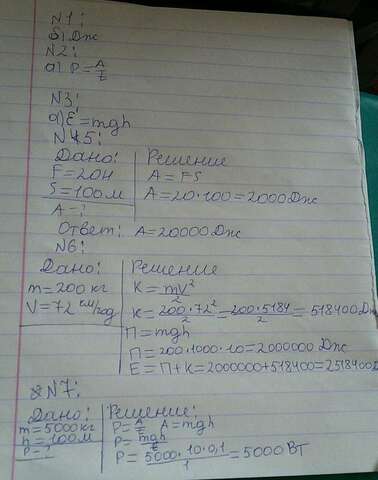 N1:
б) Дж
N2:
а) P = A/t
N3:
а) E = mgh
N45:
Дано: Решение
F = 20Н A = FS
S = 100 м A = 20·100 = 2000 Дж
A - ?
Ответ: A = 20000 Дж
N6:
Дано: Решение
m = 200 кг K = mV²/2
V = 72 км/ K = 200·72²/2 = 200·5184/2 = 518400 Дж
П = mgh
П = 200·1000·10 = 2000000 Дж
E = П + K = 2000000 + 518400 = 2518400 Дж
N7:
Дано: Решение:
m = 5000 кг P = A/t A = mgh
h = 100 м P = mgh/t
P = ? P = 5000·10·0,1/1 = 5000 Вт